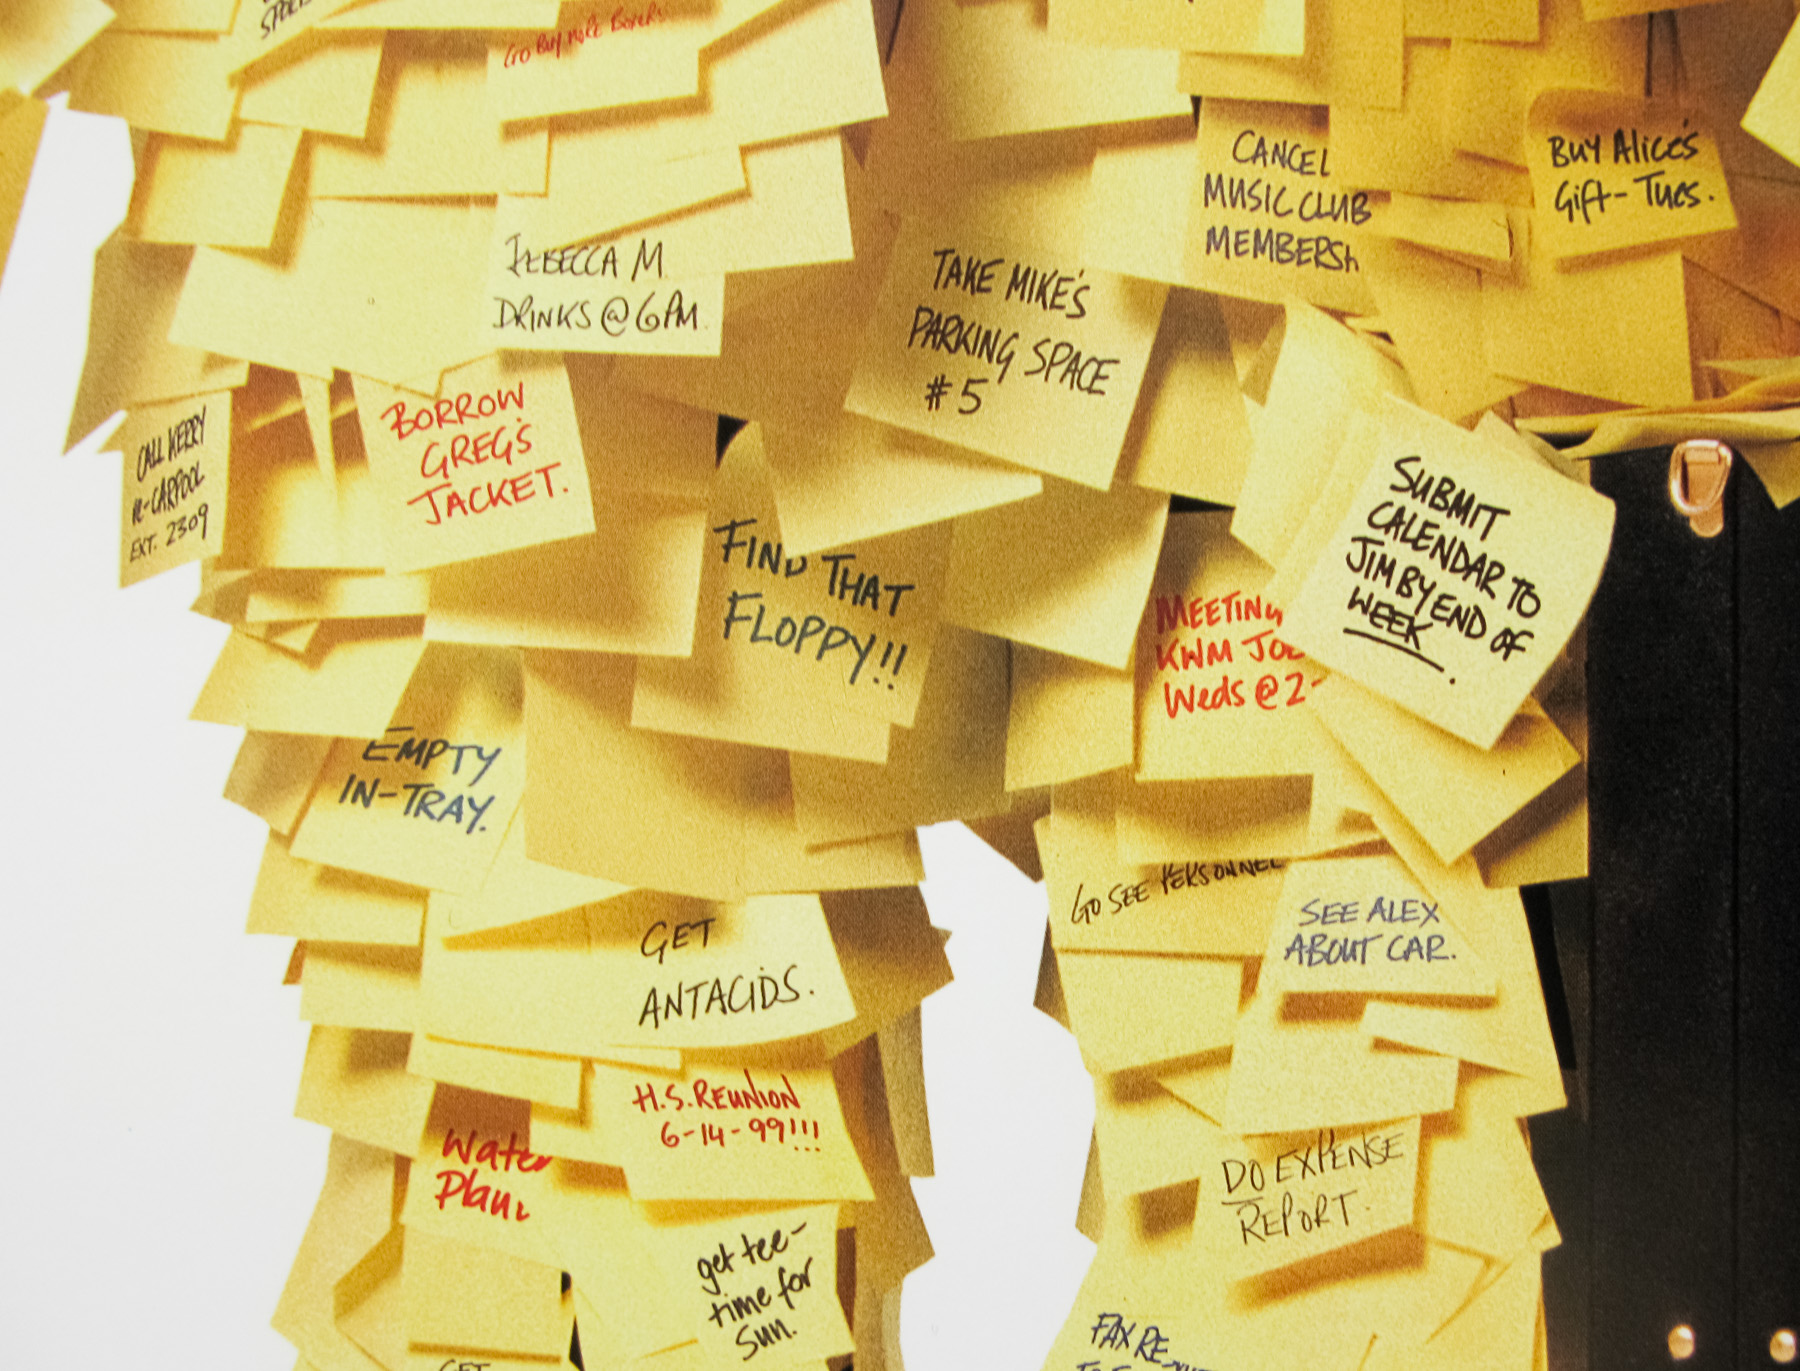 Go Buy more Boxers
CANCEL
MUSIC CLUB
MEMBERSh
BUY Alice's
Gift- Tues.
REBECCA M.
DRINKS @ 6PM.
TAKE MIKE'S
PARKING SPACE
#5
CALL KERRY
re-CARPOOL
EXT. 2309
BORROW
GREG'S
JACKET.
FIND THAT
FLOPPY!!
SUBMIT
CALENDAR TO
JIM BY END OF
WEEK.
MEETING
KWM JOE
Weds @ 2-
EMPTY
IN-TRAY.
GO SEE PERSONNEL
SEE ALEX
ABOUT CAR.
GET
ANTACIDS.
H.S. REUNION
6-14-99!!!
Water
Plant
DO EXPENSE
REPORT.
get tee-
time for
Sun.
FAX RE
GET